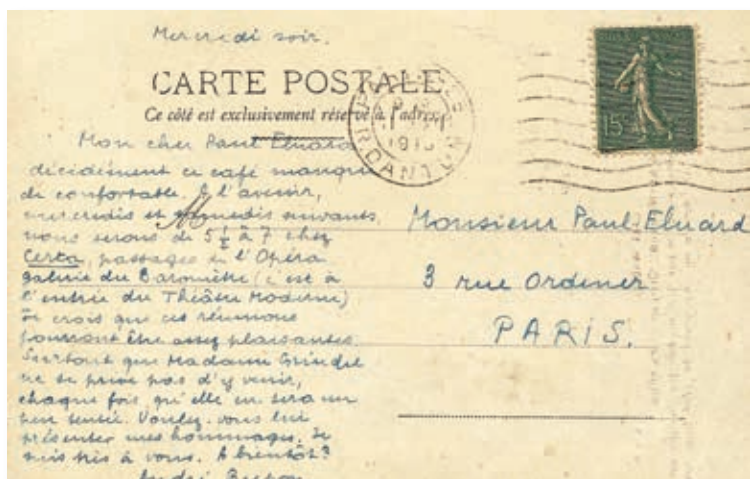 Mercredi soir.
CARTE POSTALE
Ce côté est exclusivement réservé à l'adresse
15c
Mon cher Paul Eluard
décidément ce café manque
de confortable. A l'avenir,
mercredis et samedis suivants
nous serons de 5 ½ à 7 chez
Certa, passage de l'Opéra
galerie du Baromètre (c'est à
l'entrée du Théâtre Moderne)
Je crois que ces réunions
pourront être assez plaisantes.
Surtout que Madame Grindel
ne se prive pas d'y venir,
chaque fois qu'elle en sera un
peu tentée. Voulez-vous lui
présenter mes hommages. Je
suis très à vous. A bientôt?
André Breton
Monsieur Paul Eluard
3 rue Ordener
PARIS.
R. DANTON